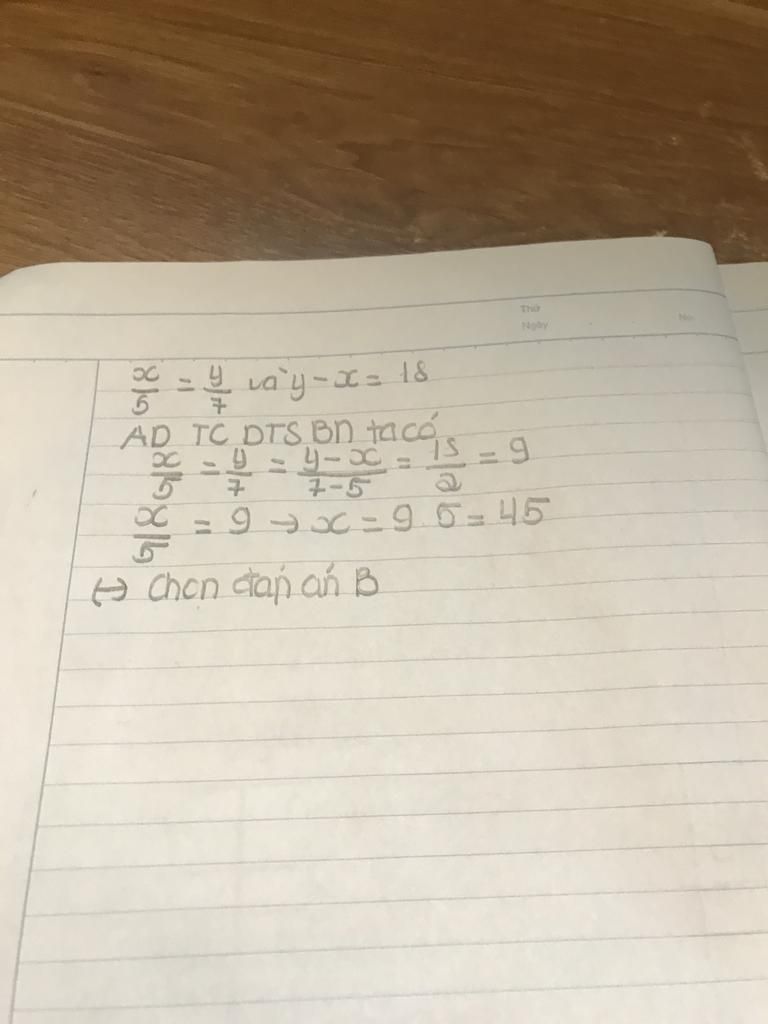 Thứ
Ngày No.
x/5 = y/7 và y - x = 18
AD TC DTSBN ta có
x/5 = y/7 = y-x/7-5 = 18/2 = 9
x/5 = 9 → x = 9.5 = 45
↔ Chọn đáp án B